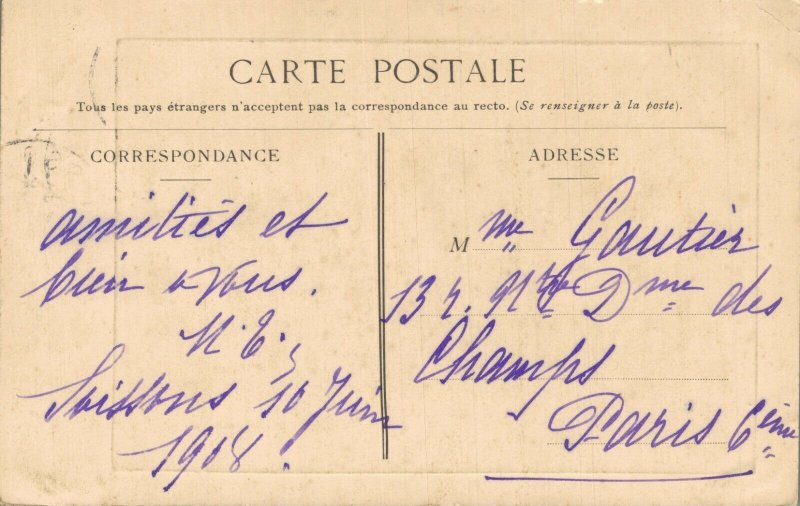 CARTE POSTALE
Tous les pays étrangers n'acceptent pas la correspondance au recto. (Se renseigner à la poste).
CORRESPONDANCE
amitiés et
bien à vous.
Soissons 10 Juin
1908.
ADRESSE
Mme Gautier
13 r. Ntre Dme des
Champs
Paris 6ème